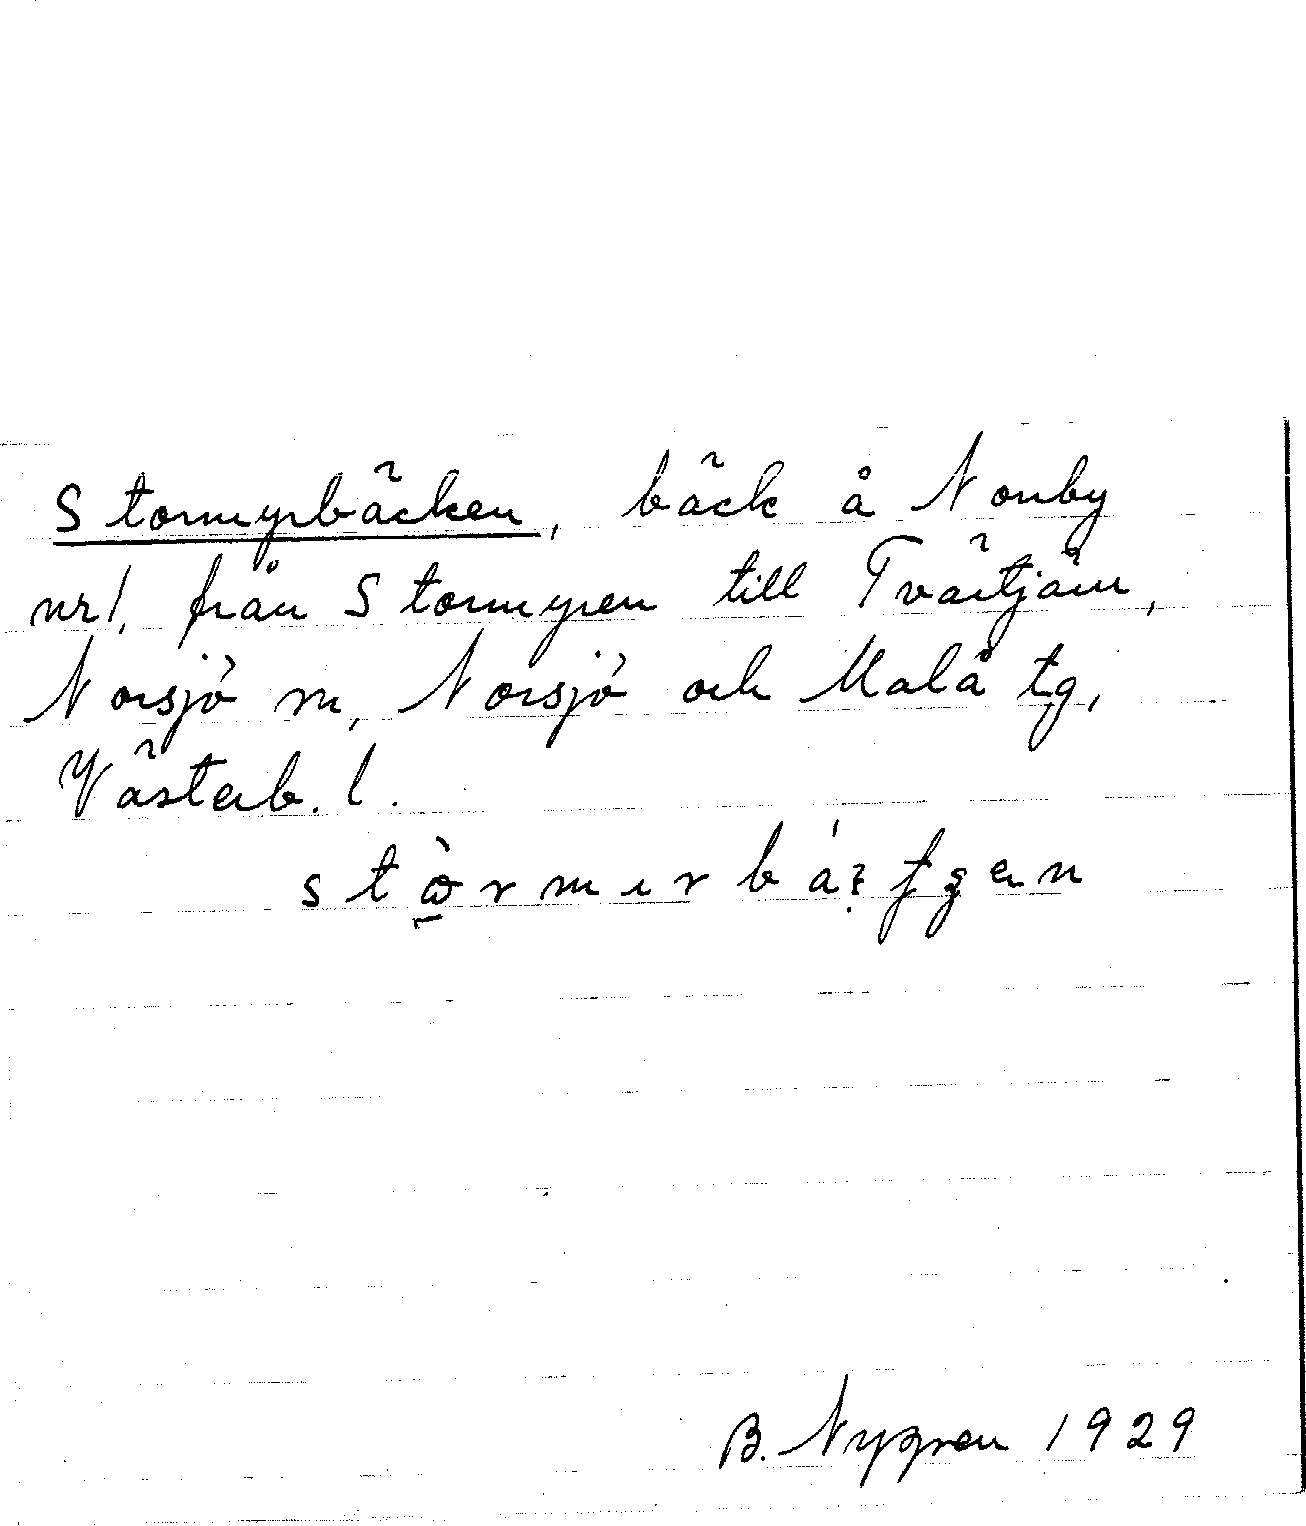 Stormyrbäcken, bäck å Norrby
nr 1, från Stormyren till Tvärtjärn,
Norsjö sn, Norsjö och Malå tg,
Västerb. l.
B. Nygren 1929